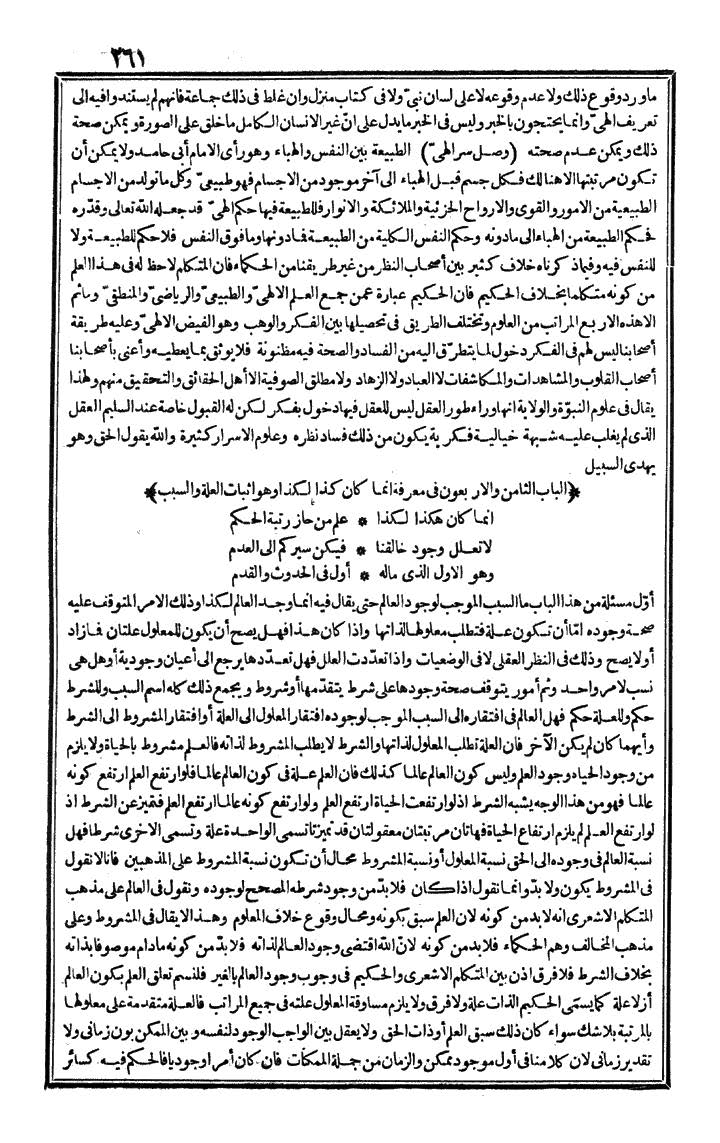 ٢٦١
ماورد وقوع ذلك ولا عدم وقوعه لا على لسان نبىّ ولا فى كتاب منزل وان غلط فى ذلك جماعة فانهم لم يستندوا فيه الى
تعريف الهىّ وانما يحتجون بالخبر وليس فى الخبر ما يدل على انّ غير الانسان الكامل ما خلق على الصورة ويمكن صحة
ذلك ويمكن عدم صحته (وصل سر الهىّ) الطبيعة بين النفس والهباء وهو رأى الامام أبى حامد ولا يمكن أن
تكون مرتبتها الا هنالك فكل جسم قبل الهباء الى آخر موجود من الاجسام فهو طبيعىّ وكل ما تولد من الاجسام
الطبيعية من الامور والقوى والارواح الجزئية والملائكة والانوار فللطبيعة فيها حكم الهىّ قد جعله الله تعالى وقدّره
فحكم الطبيعة من الهباء الى مادونه وحكم النفس الكلية من الطبيعة فمادونها وما فوق النفس فلا حكم للطبيعة ولا
للنفس فيه وفيما ذكرناه خلاف كثير بين أصحاب النظر من غير طريقنا من الحكماء فان المتكلم لاحظ له فى هذا العلم
من كونه متكلما بخلاف الحكيم فان الحكيم عبارة عمن جمع العلم الالهىّ والطبيعىّ والرياضىّ والمنطقىّ وماثم
الا هذه الاربع المراتب من العلوم وتختلف الطريق فى تحصيلها بين الفكر والوهب وهو الفيض الالهىّ وعليه طريقة
أصحابنا ليس لهم فى الفكر دخول لما يتطرّق اليه من الفساد والصحة فيه مظنونة فلا يوثق بما يعطيه وأعنى بأصحابنا
أصحاب القلوب والمشاهدات والمكاشفات لا العباد ولا الزهاد ولا مطلق الصوفية الا أهل الحقائق والتحقيق منهم ولهذا
يقال فى علوم النبوّة والولاية انها وراء طور العقل ليس للعقل فيها دخول بفكر لكن له القبول خاصة عند السليم العقل
الذى لم يغلب عليه شبهة خيالية فكرية يكون من ذلك فساد نظره وعلوم الاسرار كثيرة والله يقول الحق وهو
يهدى السبيل
﴿الباب الثامن والاربعون فى معرفة انما كان كذا لكذا وهو اثبات العلة والسبب﴾
انما كان هكذا لكذا * علم من حاز رتبة الحكم
لا تعلل وجود خالقنا * فيكن سيركم الى العدم
وهو الاول الذى ماله * أول فى الحدوث والقدم
أوّل مسئلة من هذا الباب ما السبب الموجب لوجود العالم حتى يقال فيه انما وجد العالم لكذا وذلك الامر المتوقف عليه
صحة وجوده امّا أن تكون علة فتطلب معلولها لذاتها واذا كان هذا فهل يصح أن يكون للمعلول علتان فمازاد
أولا يصح وذلك فى النظر العقلى لا فى الوضعيات واذا تعدّدت العلل فهل تعدّدها يرجع الى أعيان وجودية أوهل هى
نسب لامر واحد وثم أمور يتوقف صحة وجودها على شرط يتقدّمها أو شروط ويجمع ذلك كله اسم السبب وللشرط
حكم وللعلة حكم فهل العالم فى افتقاره الى السبب الموجب لوجوده افتقار المعلول الى العلة أو افتقار المشروط الى الشرط
وأيهما كان لم يكن الآخر فان العلة تطلب المعلول لذاتها والشرط لا يطلب المشروط لذاته فالعلم مشروط بالحياة ولا يلزم
من وجود الحياه وجود العلم وليس كون العالم عالما كذلك فان العلم علة فى كون العالم عالما فلو ارتفع العلم ارتفع كونه
عالما فهو من هذا الوجه يشبه الشرط اذ لو ارتفعت الحياة ارتفع العلم ولو ارتفع كونه عالما ارتفع العلم فتميز عن الشرط اذ
لو ارتفع العلم لم يلزم ارتفاع الحياة فهاتان مرتبتان معقولتان قد تميزتا تسمى الواحدة علة وتسمى الاخرى شرطا فهل
نسبة العالم فى وجوده الى الحق نسبة المعلول أو نسبة المشروط محال أن تكون نسبة المشروط على المذهبين فانا لا نقول
فى المشروط يكون ولا بدّ وانما نقول اذا كان فلا بدّ من وجود شرطه المصحح لوجوده ونقول فى العالم على مذهب
المتكلم الاشعرى انه لا بد من كونه لان العلم سبق بكونه ومحال وقوع خلاف المعلوم وهذا لا يقال فى المشروط وعلى
مذهب المخالف وهم الحكماء فلا بد من كونه لانّ الله اقتضى وجود العالم لذاته فلا بدّ من كونه مادام موصوفا بذاته
بخلاف الشرط فلا فرق اذن بين المتكلم الاشعرى والحكيم فى وجوب وجود العالم بالغير فلنسم تعلق العلم بكون العالم
أزلا علة كما يسمى الحكيم الذات علة ولا فرق ولا يلزم مساوقة المعلول علته فى جميع المراتب فالعلة متقدمة على معلولها
بالمرتبة بلا شك سواء كان ذلك سبق العلم أو ذات الحق ولا يعقل بين الواجب الوجود لنفسه و بين الممكن بون زمانى ولا
تقدير زمانى لان كلامنا فى أول موجود ممكن والزمان من جملة الممكنات فان كان أمرا وجوديا فالحكم فيه كسائر